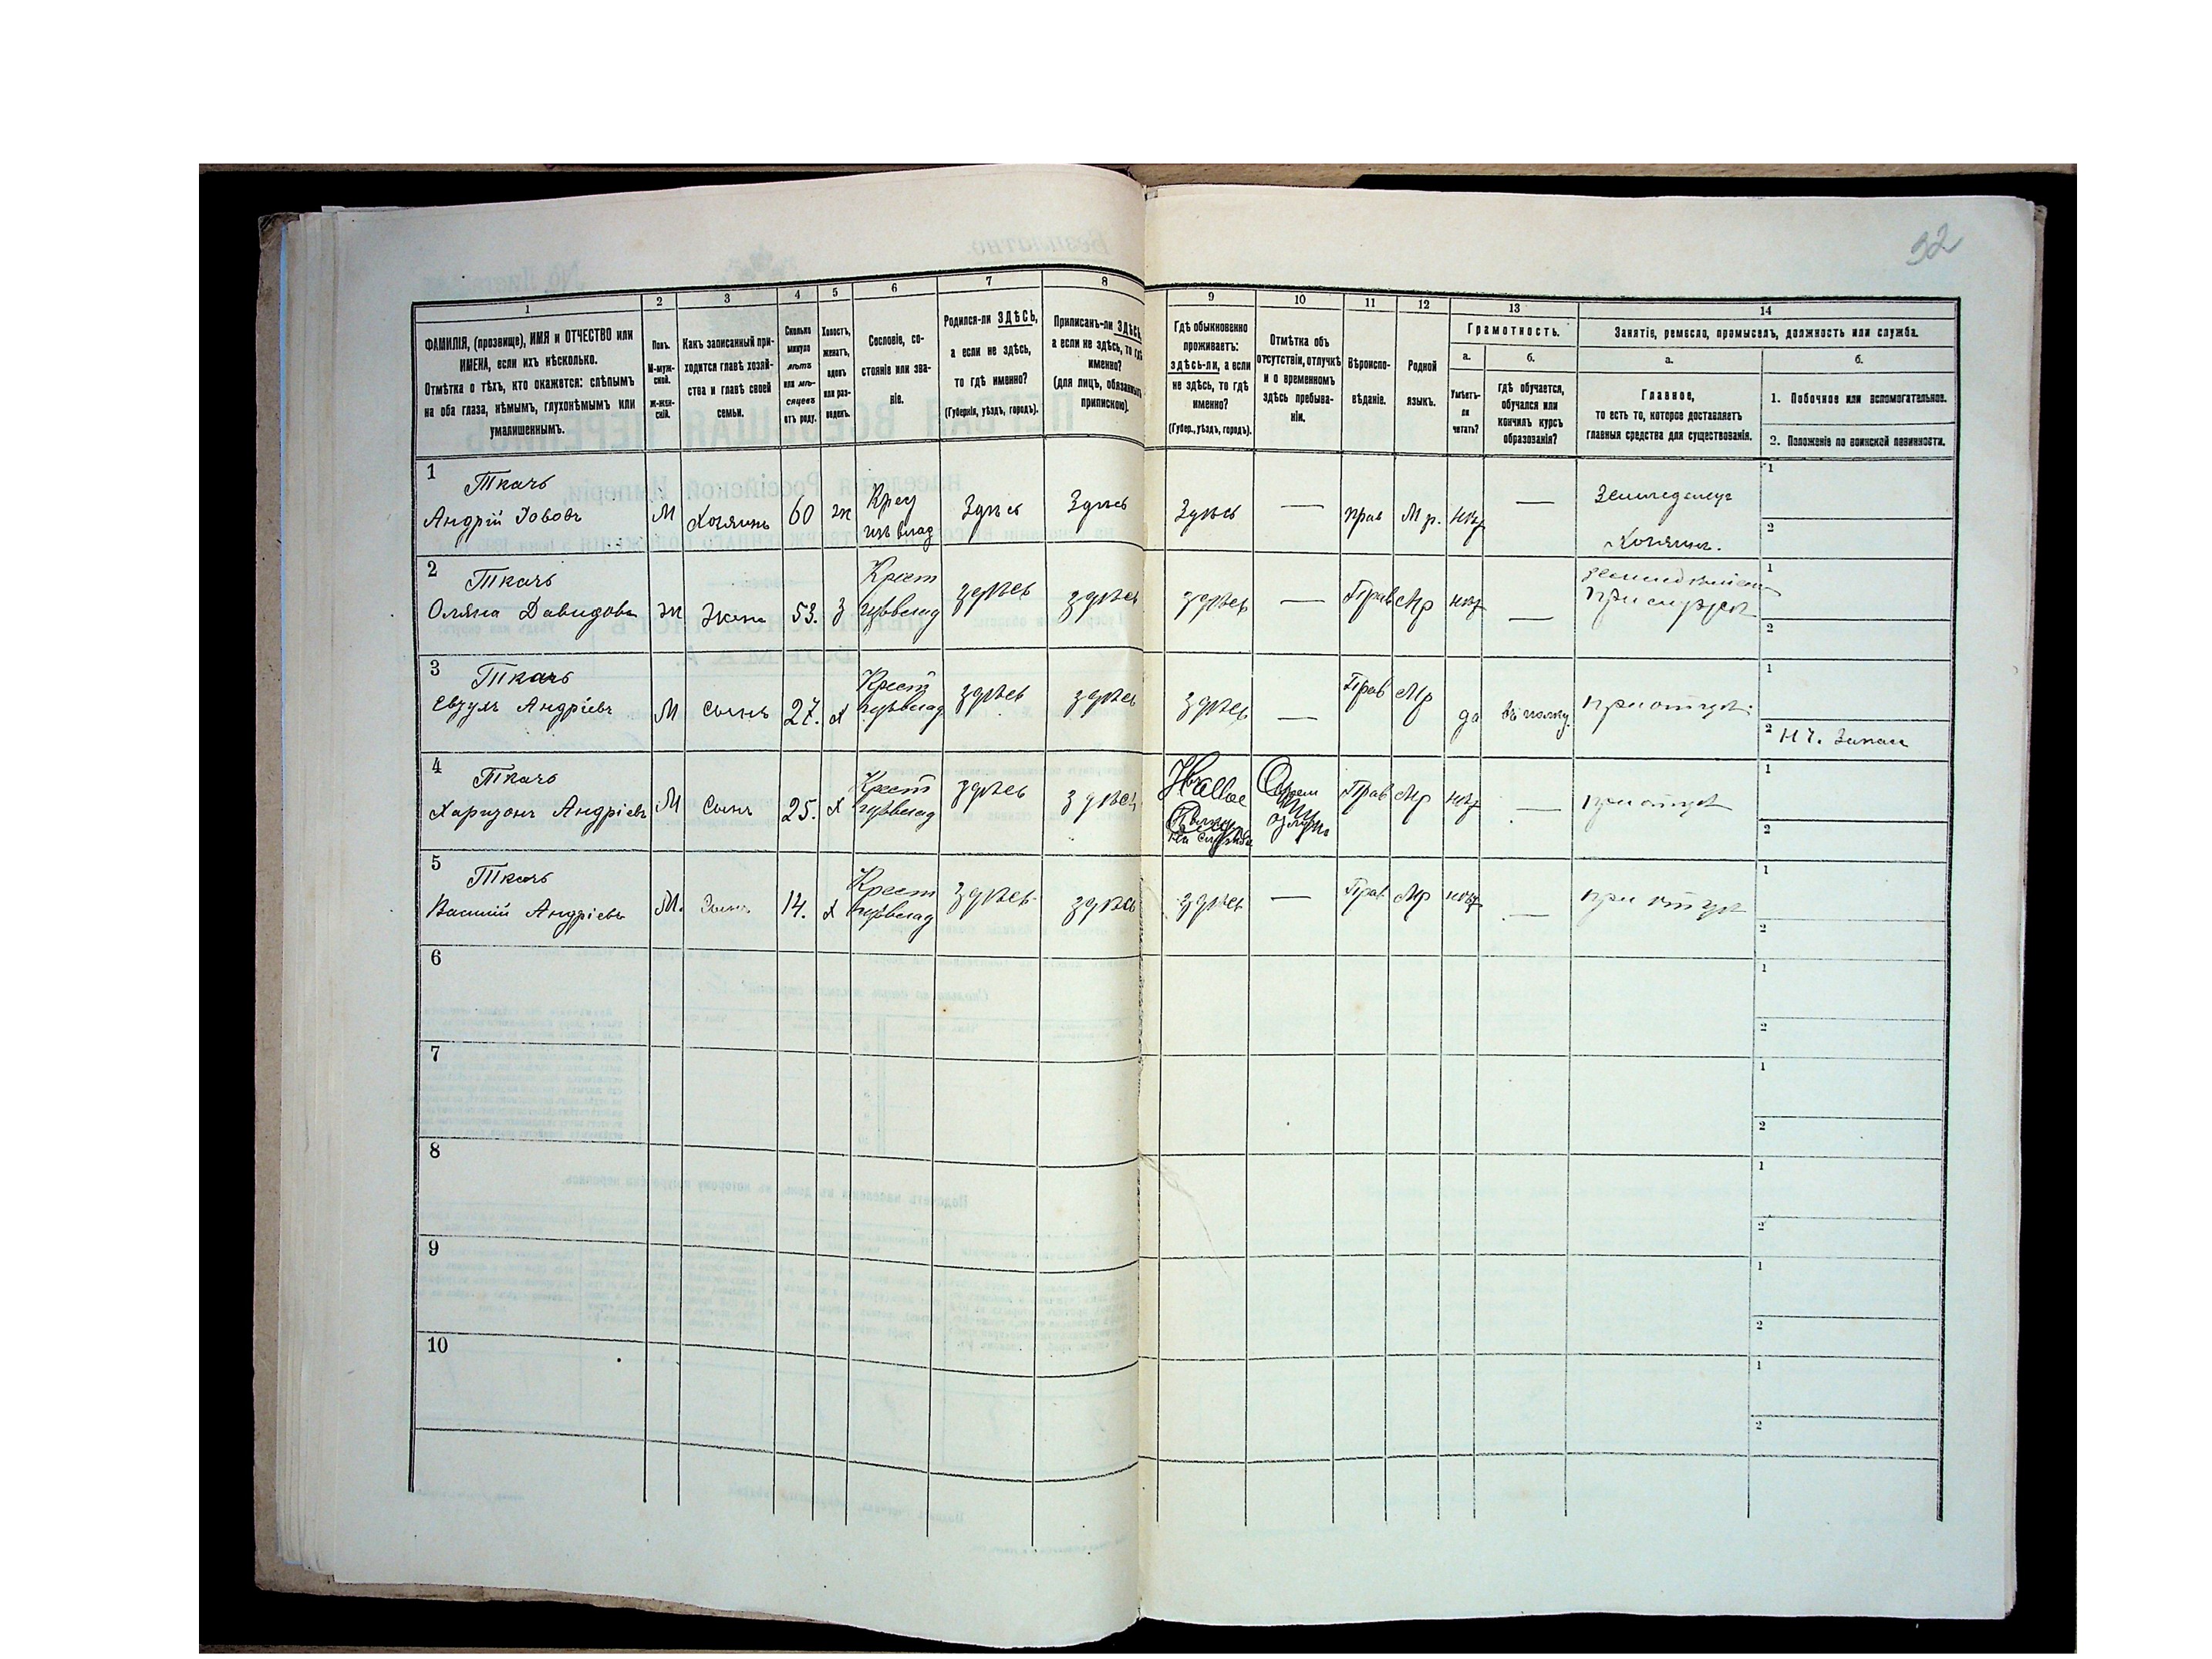 32
1 2 3 4 5 6 7 8 9 10 11 12 13 14
ФАМИЛІЯ, (прозвище), ИМЯ и ОТЧЕСТВО или
ИМЕНА, если ихъ нѣсколько.
Отмѣтка о тѣхъ, кто окажется: слѣпымъ
на оба глаза, нѣмымъ, глухонѣмымъ или
умалишеннымъ.
Полъ.
М-муж-
ской.
Ж-жен-
скій.
Какъ записанный при-
ходится главѣ хозяй-
ства и главѣ своей
семьи.
Сколько
минуло
лѣтъ
или мѣ-
сяцевъ
отъ роду.
Холостъ,
женатъ,
вдовъ
или раз-
веденъ.
Сословіе, со-
стояніе или зва-
ніе.
Родился-ли ЗДѢСЬ,
а если не здѣсь,
то гдѣ именно?
(Губернія, уѣздъ, городъ).
Приписанъ-ли ЗДѢСЬ,
а если не здѣсь, то гдѣ
именно?
(для лицъ, обязанныхъ
припискою).
Гдѣ обыкновенно
проживаетъ:
ЗДѢСЬ-ЛИ, а если
не здѣсь, то гдѣ
именно?
(Губер., уѣздъ, городъ).
Отмѣтка объ
отсутствіи, отлучкѣ
и о временномъ
здѣсь пребыва-
ніи.
Вѣроиспо-
вѣданіе.
Родной
языкъ.
Грамотность.
а.
Умѣетъ-
ли
читать?
б.
Гдѣ обучается,
обучался или
кончилъ курсъ
образованія?
Занятіе, ремесло, промыселъ, должность или служба.
а.
Главное,
то есть то, которое доставляетъ
главныя средства для существованія.
б.
1. Побочное или вспомогательное.
2. Положеніе по воинской повинности.
1
Ткачъ
Андрій Іововъ М Хозяинъ 60 ж Крес из влад Здѣсь Здѣсь Здѣсь — прав М р. нѣт — Хозяинъ.
1
2
2
Ткачъ
Оляна Давидова Ж Жена 53. З Крест здѣсь здѣсь здѣсь — Прав Мр нѣт —
1
2
3
Ткачъ
Андріевъ М сынъ 27. Х Крест здѣсь здѣсь здѣсь — Прав Мр да при отцѣ.
1
2
4
Ткачъ
Харитонъ Андріевъ М Сынъ 25. Х Крест здѣсь здѣсь Прав Мр нѣт — при отцѣ
1
2
5
Ткачъ
Василій Андріевъ М. Сынъ 14. Х Крест здѣсь здѣсь здѣсь — Прав Мр нѣт — при отцѣ
1
2
6
1
2
7
1
2
8
1
2
9
1
2
10
1
2